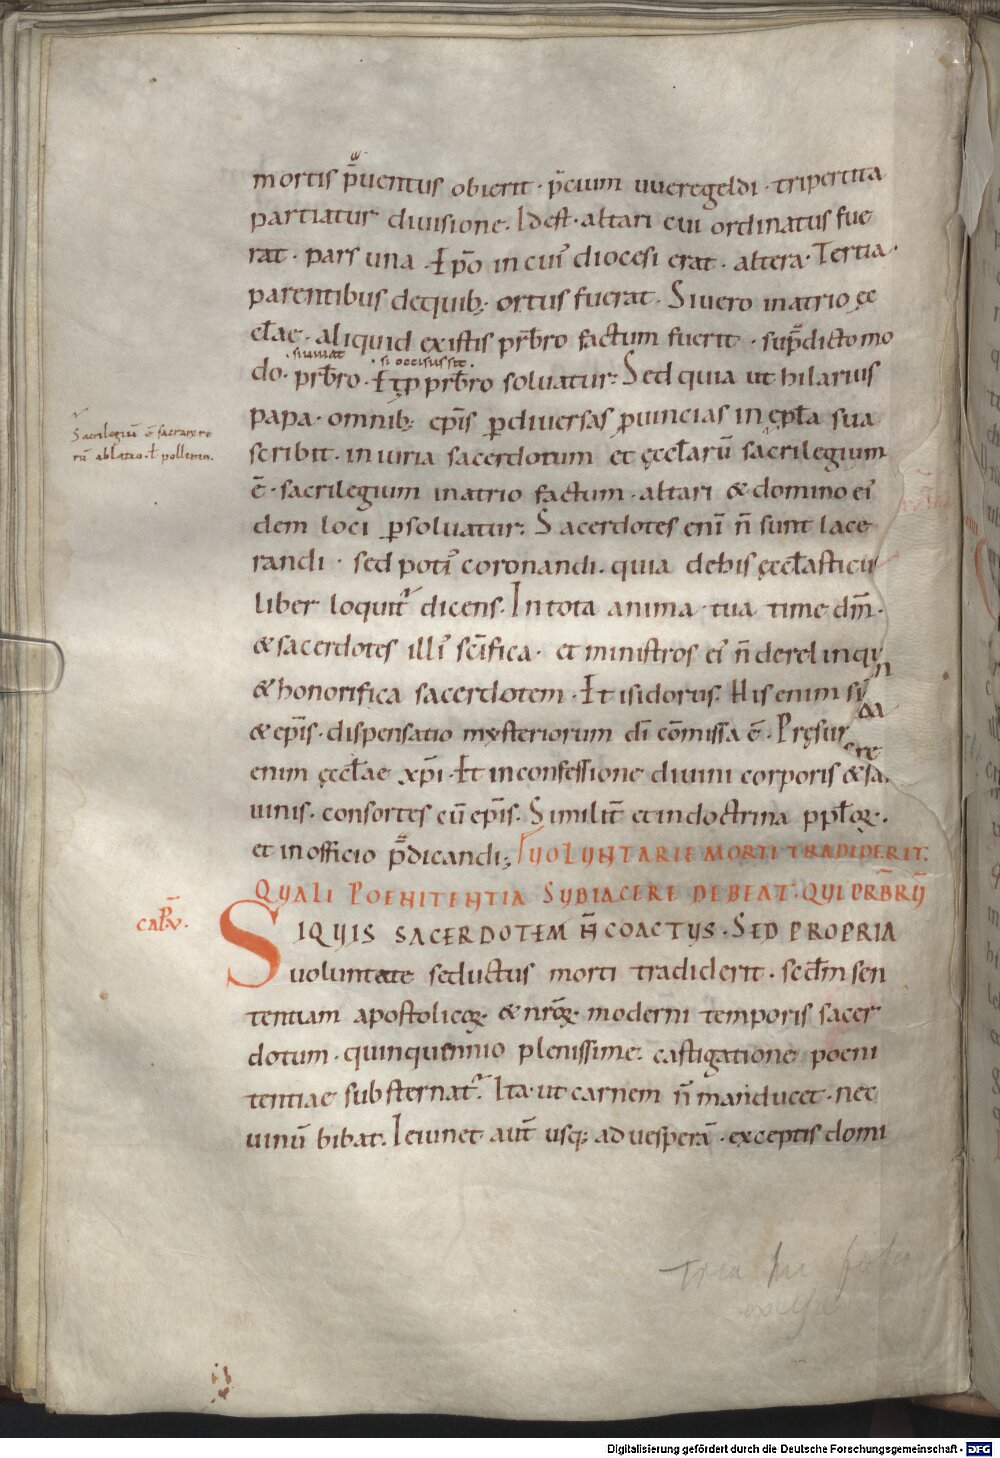 mortis p̄uentus obierit · p̄cium uueregeldi · tripertita
partiatur diuisione. Idest · altari cui ordinatus fue
rat · pars una · Ep̄o in cuiꝰ diocesi erat · altera · Tertia ·
parentibus dequib; ortus fuerat · Si uero in atrio ęc
cƚae · aliquid ex istis prb̄ro factum fuerit · sup̄dicto mo
· si uiuat · si occisus sit ·
do · prb̄ro · ƚ ꝑ prb̄ro soluatur: Sed quia ut hilarius
papa · omnib; ep̄is ꝑ diuersas ꝓuincias in ep̄ƚa sua
scribit · iniuria sacerdotum et ęccƚarū sacrilegium
ē · sacrilegium in atrio factum · altari & domino eiꝰ
dem loci ꝑsoluatur: Sacerdotes enī n̄ sunt lace
randi · sed potiꝰ coronandi · quia de his ęccƚasticus
liber loquit᷑ dicens · In tota anima tua time dm̄ ·
& sacerdotes illiꝰ sc̄ifica · et ministros eiꝰ n̄ derelinqu
& honorifica sacerdotem · Et isidorus · His enim
& ep̄is · dispensatio mysteriorum dī cōmissa ē · Pręsunt
enim ęccƚae xp̄i · Et in confessione diuini corporis &
uinis · consortes cū ep̄is · Similit̄ et in doctrina ppƚoꝝ ·
et in officio p̄dicandi; UOLUNTARIE MORTI TRADIDERIT.
QUALI POENITENTIA SUBIACERE DEBEAT · QUI PRB̄RŪ
SIQUIS SACERDOTEM N̄ COACTUS · SED PROPRIA
uoluntate seductus morti tradiderit · scd̄m sen
tentiam apostolicoꝝ · & nr̄oꝝ moderni temporis sacer
dotum · quinquennio plenissime · castigatione poeni
tentiae substernat᷑ · Ita · ut carnem n̄ manducet · nec
uinū bibat · Ieiunet aūt usq; ad uesperā · exceptis domi
Sacrilegiū ē sacrarū re
rū ablatio · ƚ pollutio.
cap̄ · v ·
Digitalisierung gefördert durch die Deutsche Forschungsgemeinschaft - DFG